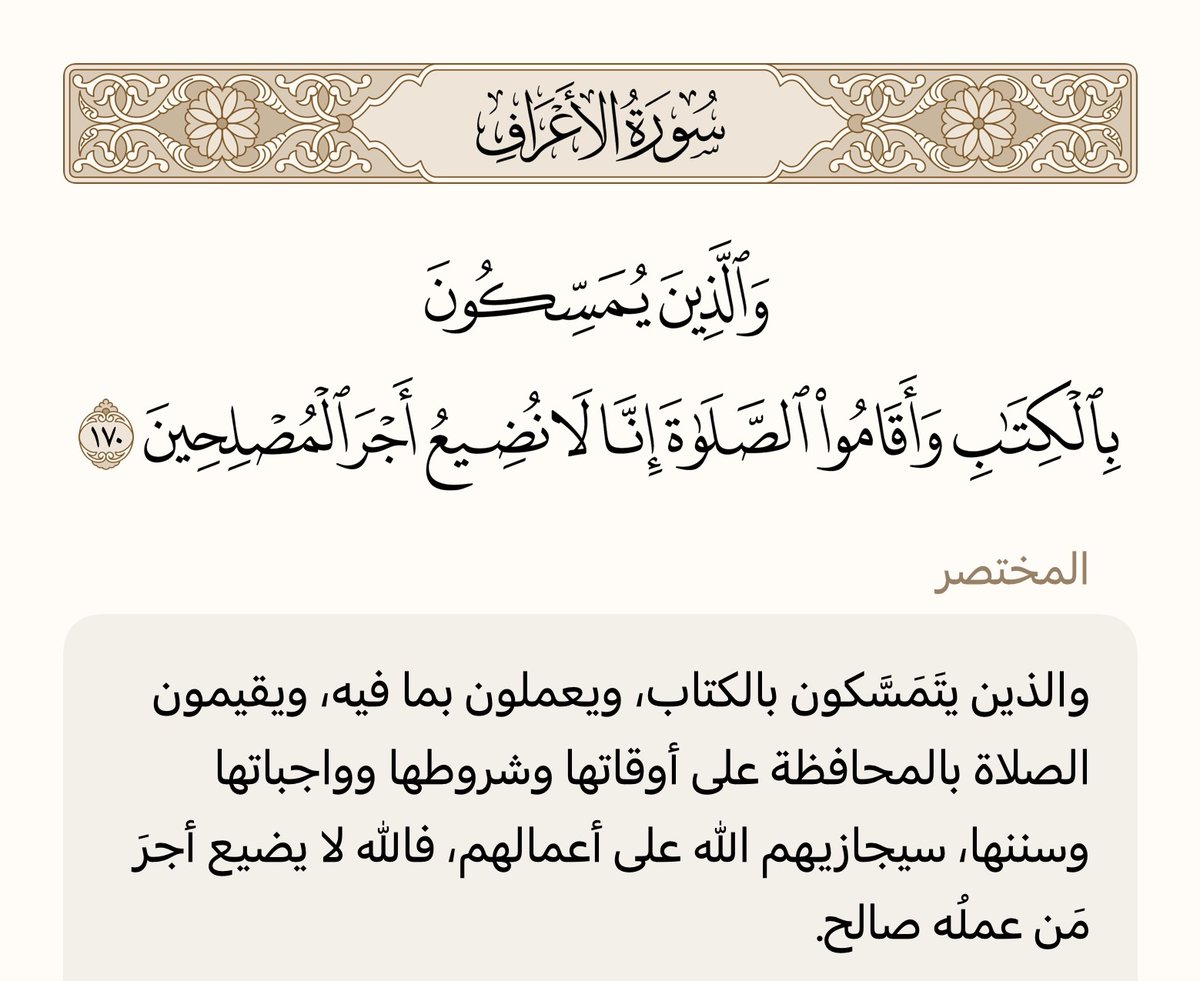 سُورَةُ الأَعْرَافِ
وَٱلَّذِينَ يُمَسِّكُونَ
بِٱلْكِتَٰبِ وَأَقَامُوا۟ ٱلصَّلَوٰةَ إِنَّا لَا نُضِيعُ أَجْرَ ٱلْمُصْلِحِينَ ١٧٠
المختصر
والذين يتَمَسَّكون بالكتاب، ويعملون بما فيه، ويقيمون
الصلاة بالمحافظة على أوقاتها وشروطها وواجباتها
وسننها، سيجازيهم الله على أعمالهم، فالله لا يضيع أجرَ
مَن عملُه صالح.